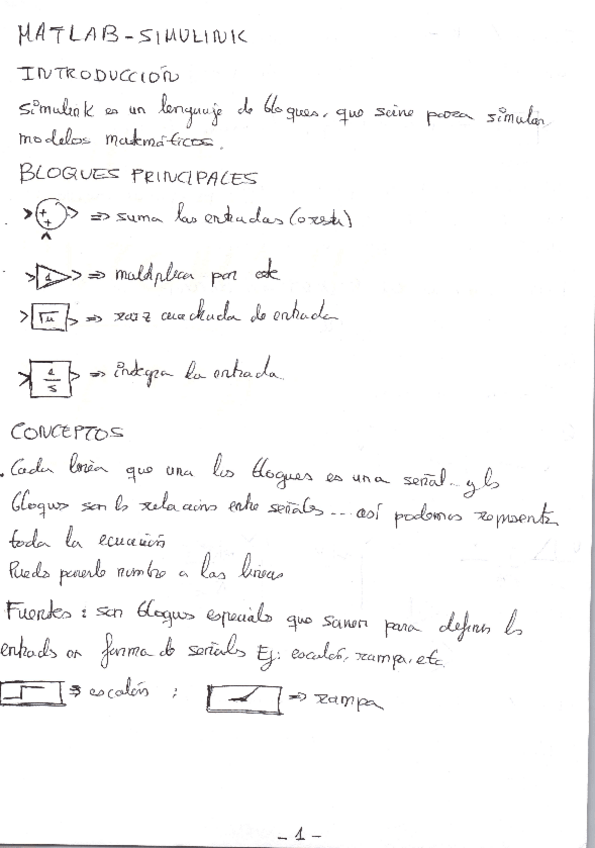 MATLAB-SIMULINK
INTRODUCCIÓN
Simulink es un lenguaje de bloques, que sirve para simular
modelos matemáticos.
BLOQUES PRINCIPALES
+ + ⇒ suma las entradas (o resta)
1 ⇒ multiplica por cte
√u ⇒ raiz cuadrada de entrada
1/s ⇒ integra la entrada
CONCEPTOS
. Cada linea que una los bloques es una señal... y los
bloques son las relaciones entre señales... así podemos representar
toda la ecuación
Puedo ponerle nombre a las lineas
Fuentes: son bloques especiales que sirven para definir las
entradas en forma de señales Ej: escalón, rampa, etc.
⇒ escalón ; ⇒ rampa
- 1 -